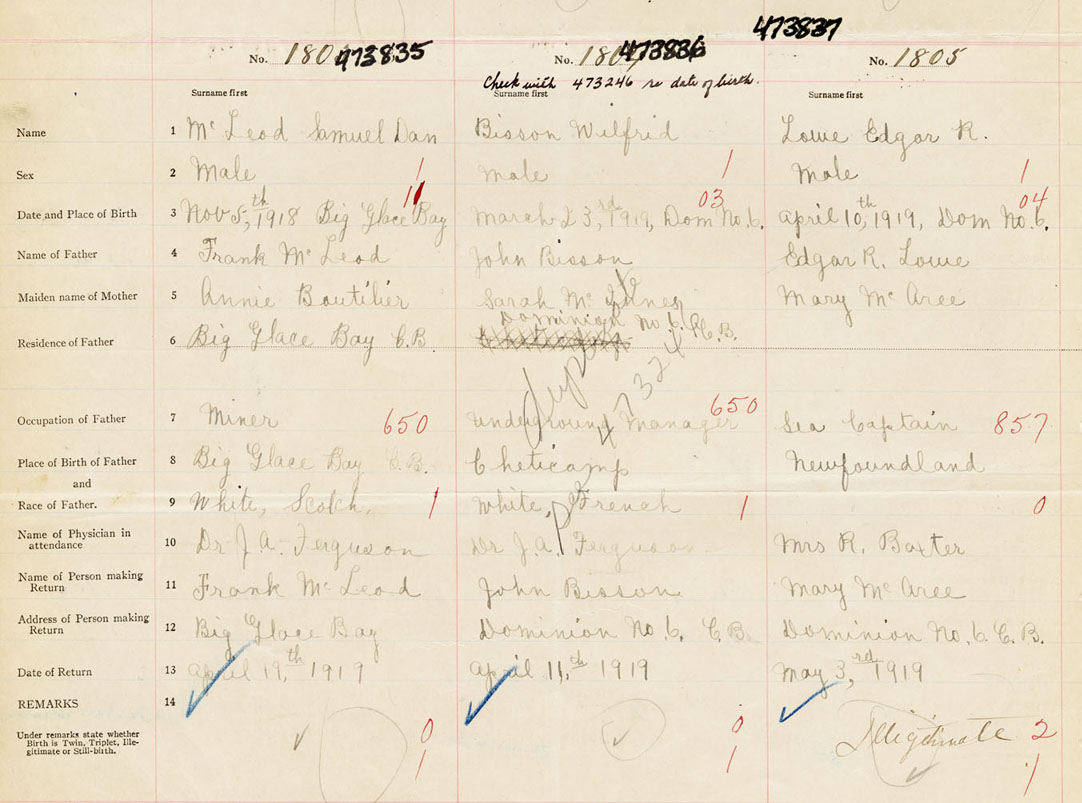 473837
No. 180 473835
No. 180 473836
No. 1805
Check with 473246 re date of birth.
Surname first
Surname first
Surname first
Name 1 Mc Leod Samuel Dan Bisson Wilfrid Lowe Edgar R.
Sex 2 Male 1 male 1 male 1
11 03 04
Date and Place of Birth 3 Nov 5,th 1918 Big Glace Bay March 23,rd 1919, Dom No. 6. April 10th, 1919, Dom No. 6.
Name of Father 4 Frank Mc Leod John Bisson Edgar R. Lowe
Maiden name of Mother 5 Annie Boutilier Sarah Mc Mary Mc Aree
Dominion No 6. C.B.
Residence of Father 6 Big Glace Bay C.B.
Occupation of Father 7 Miner 650 underground Manager 650 Sea Captain 857
Place of Birth of Father 8 Big Glace Bay C.B. Cheticamp Newfoundland
and
Race of Father. 9 White, Scotch. 1 White, French 1 0
Name of Physician in
attendance 10 Dr J. A. Ferguson Dr J. A. Ferguson Mrs R. Baxter
Name of Person making
Return 11 Frank Mc Leod John Bisson Mary Mc Aree
Address of Person making
Return 12 Big Glace Bay Dominion No. 6. C.B. Dominion No. 6 C.B.
Date of Return 13 April 19,th 1919 April 11, 1919 May 3,rd 1919
REMARKS 14
Under remarks state whether
Birth is Twin, Triplet, Ille-
gitimate or Still-birth.
0 0 Illigitimate 2
1 1 1